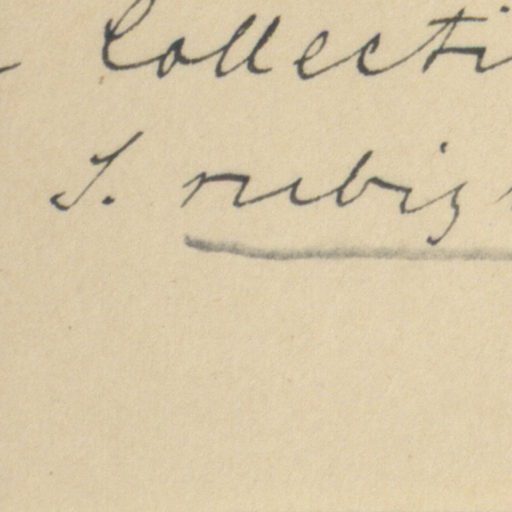 Collecti
S. rubig